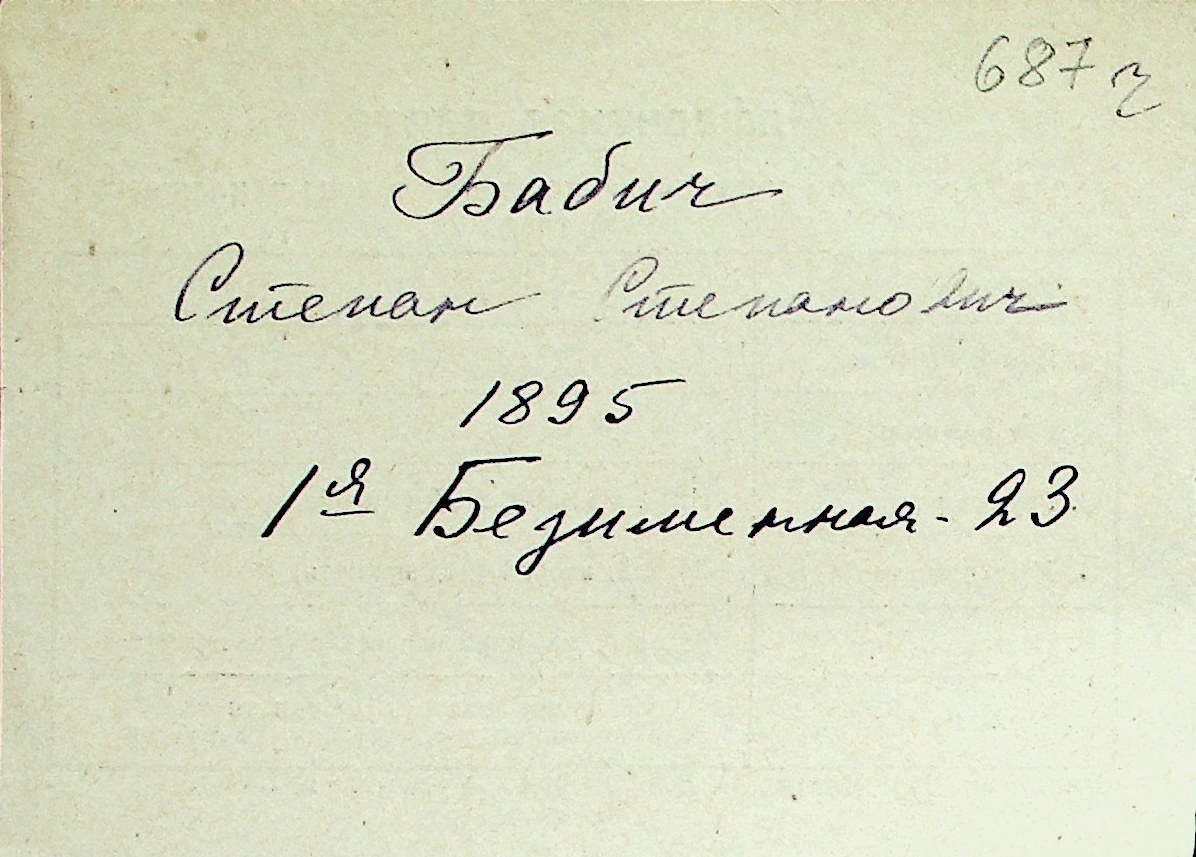 687 ч
Бабич
Степан Степанович
1895
1я Безименная - 23